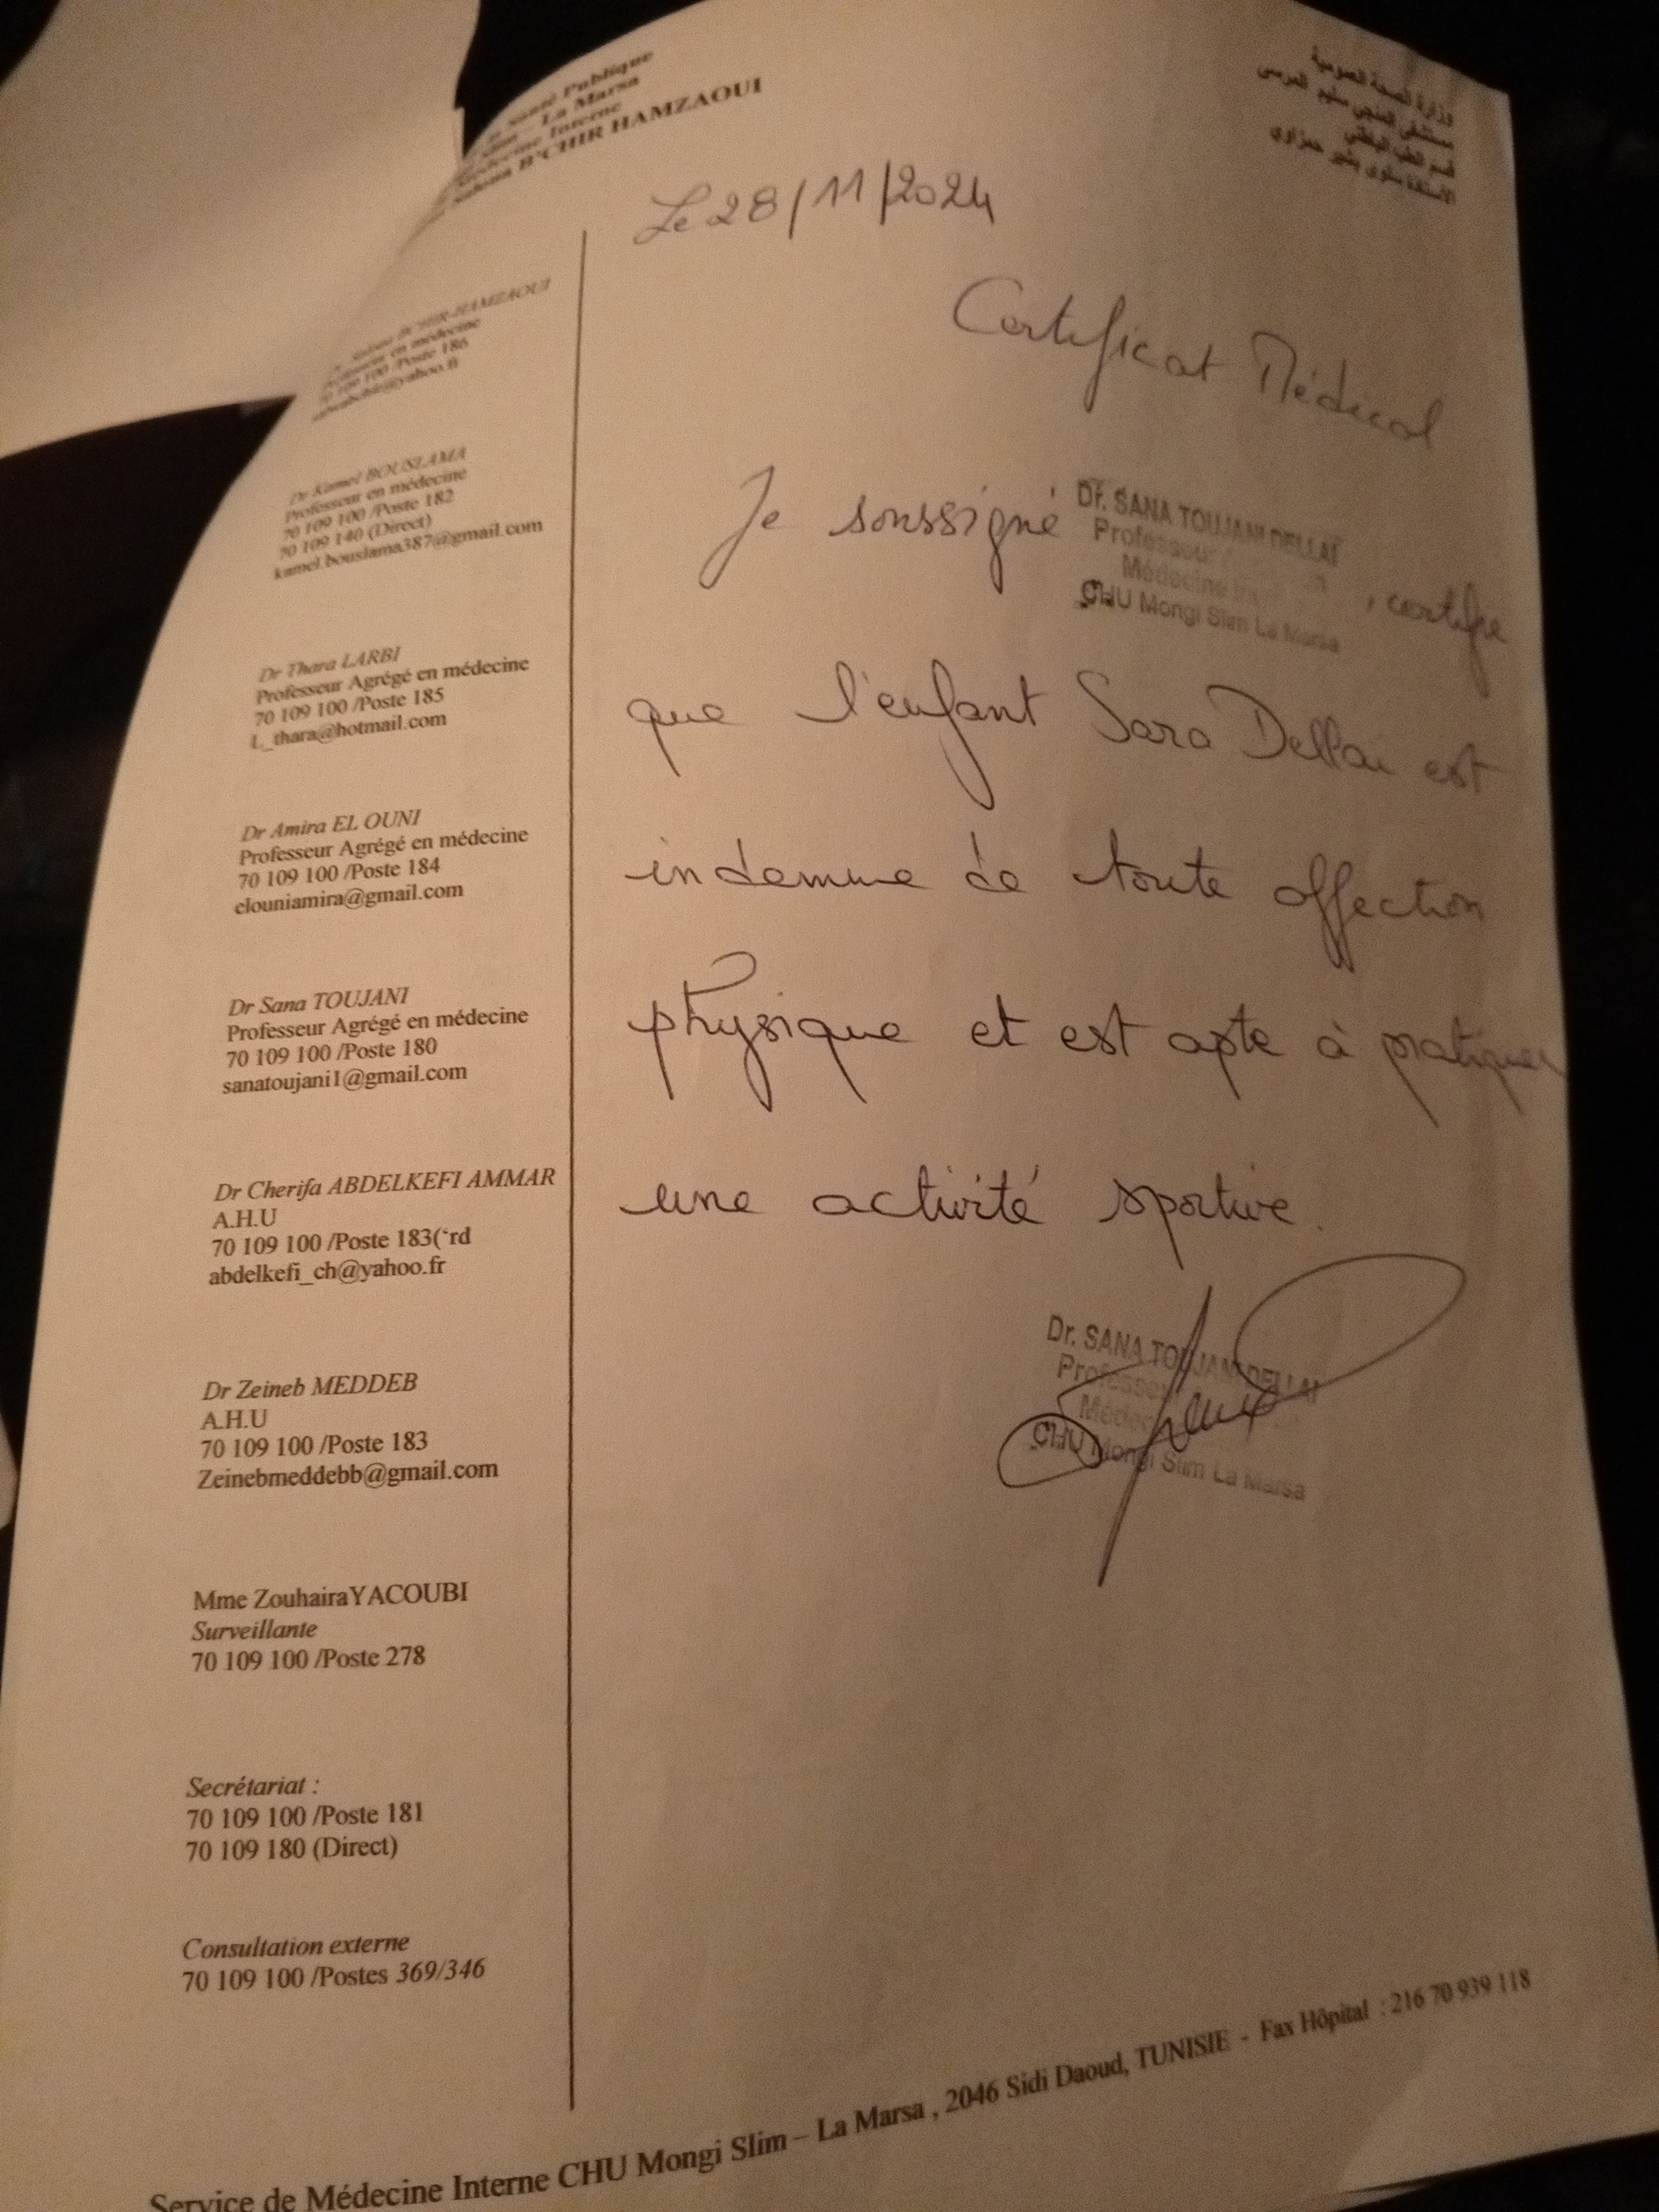 Santé Publique
La Marsa
Interne
B'CHIR HAMZAOUI
وزارة الصحة العمومية
مستشفى المنجي سليم المرسى
قسم الطب الباطني
الاستاذة سلوى بشير حمزاوي
Le 28/11/2024
Certificat Médical
Je soussigné Dr. SANA TOUJANI DELLAI
Professeur
Médecine
CHU Mongi Slim La Marsa
, certifie
que l'enfant Sara Dellai est
indemne de toute affection
physique et est apte à pratiquer
une activité sportive.
Dr. SANA TOUJANI DELLAI
Professeur
CHU Mongi Slim La Marsa
BCHIR-HAMZAOUI
Professeur en médecine
70 109 100 /Poste 186
Dr Kamel BOUSLAMA
Professeur en médecine
70 109 100 /Poste 182
70 109 140 (Direct)
kamel.bouslama387@gmail.com
Dr Thara LARBI
Professeur Agrégé en médecine
70 109 100 /Poste 185
L_thara@hotmail.com
Dr Amira EL OUNI
Professeur Agrégé en médecine
70 109 100 /Poste 184
elouniamira@gmail.com
Dr Sana TOUJANI
Professeur Agrégé en médecine
70 109 100 /Poste 180
sanatoujani1@gmail.com
Dr Cherifa ABDELKEFI AMMAR
A.H.U
70 109 100 /Poste 183(‘rd
abdelkefi_ch@yahoo.fr
Dr Zeineb MEDDEB
A.H.U
70 109 100 /Poste 183
Zeinebmeddebb@gmail.com
Mme ZouhairaYACOUBI
Surveillante
70 109 100 /Poste 278
Secrétariat :
70 109 100 /Poste 181
70 109 180 (Direct)
Consultation externe
70 109 100 /Postes 369/346
Service de Médecine Interne CHU Mongi Slim – La Marsa , 2046 Sidi Daoud, TUNISIE - Fax Hôpital : 216 70 939 118